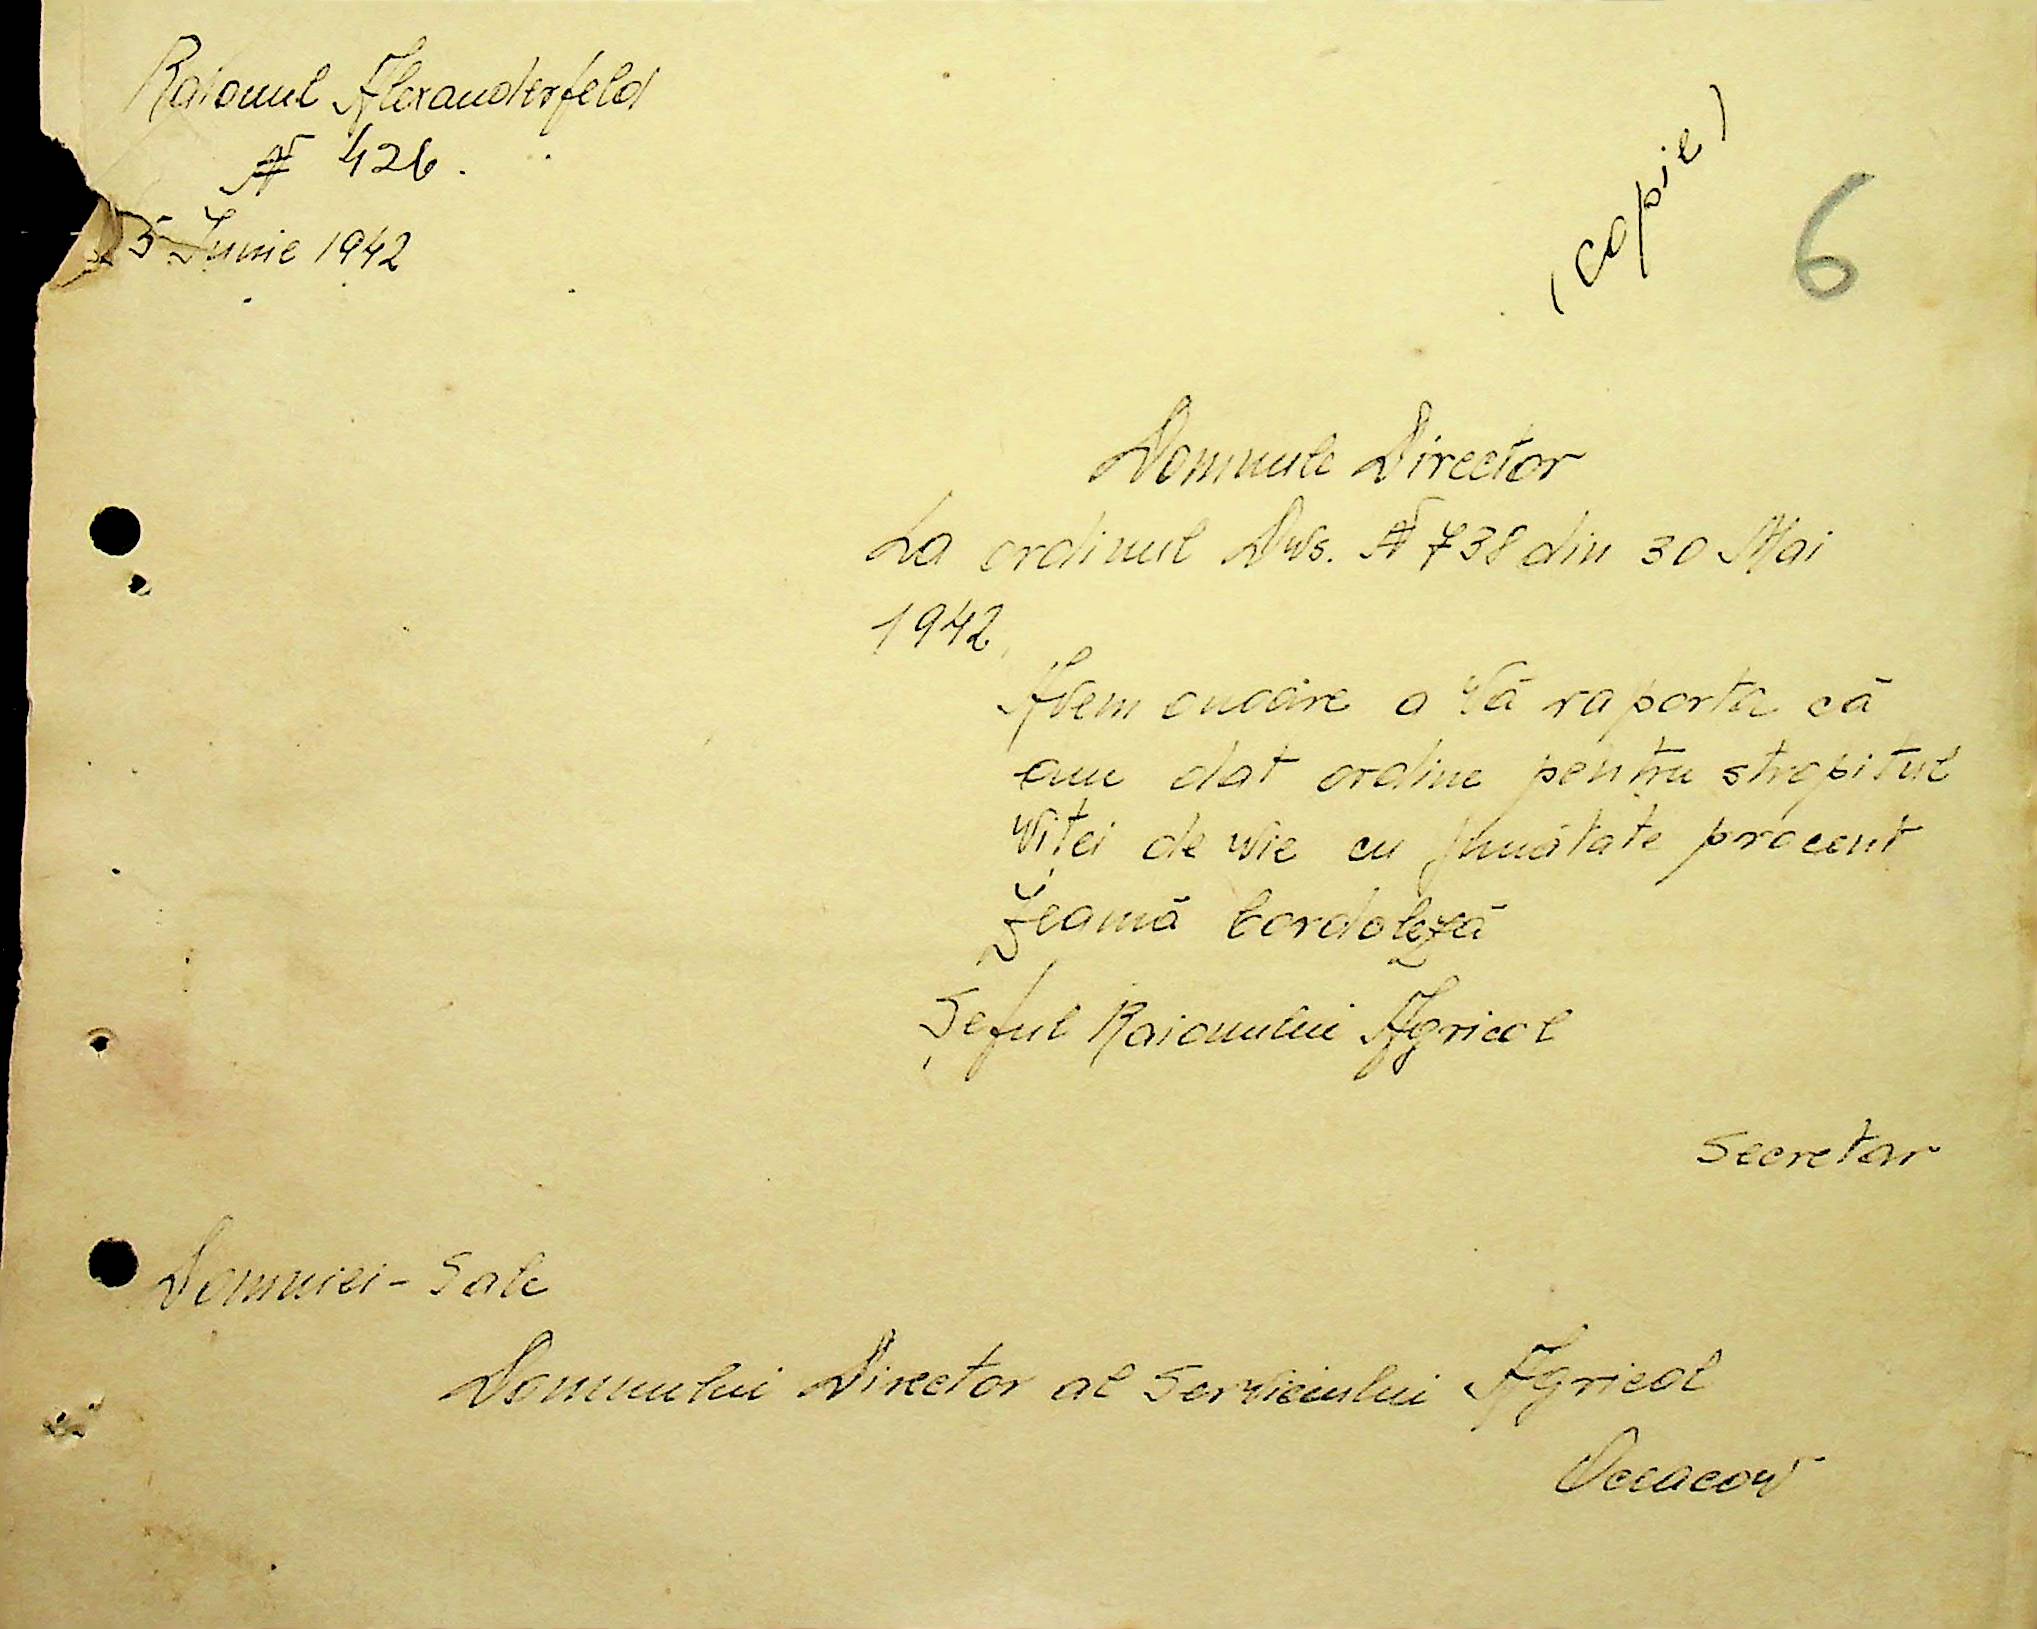 Raionul Alexanderfeld
№ 426.
5 Iunie 1942
(copie)
6
Domnule Director
La ordinul Dvs. № 738 din 30 Mai
1942.
Avem onoare a Vă raporta că
am dat ordine pentru stropitul
viței de vie cu jumătate procent
Zeamă bordoleză
Șeful Raionului Agricol
Secretar
Domniei-Sale
Domnului Director al Serviciului Agricol
Oceacov